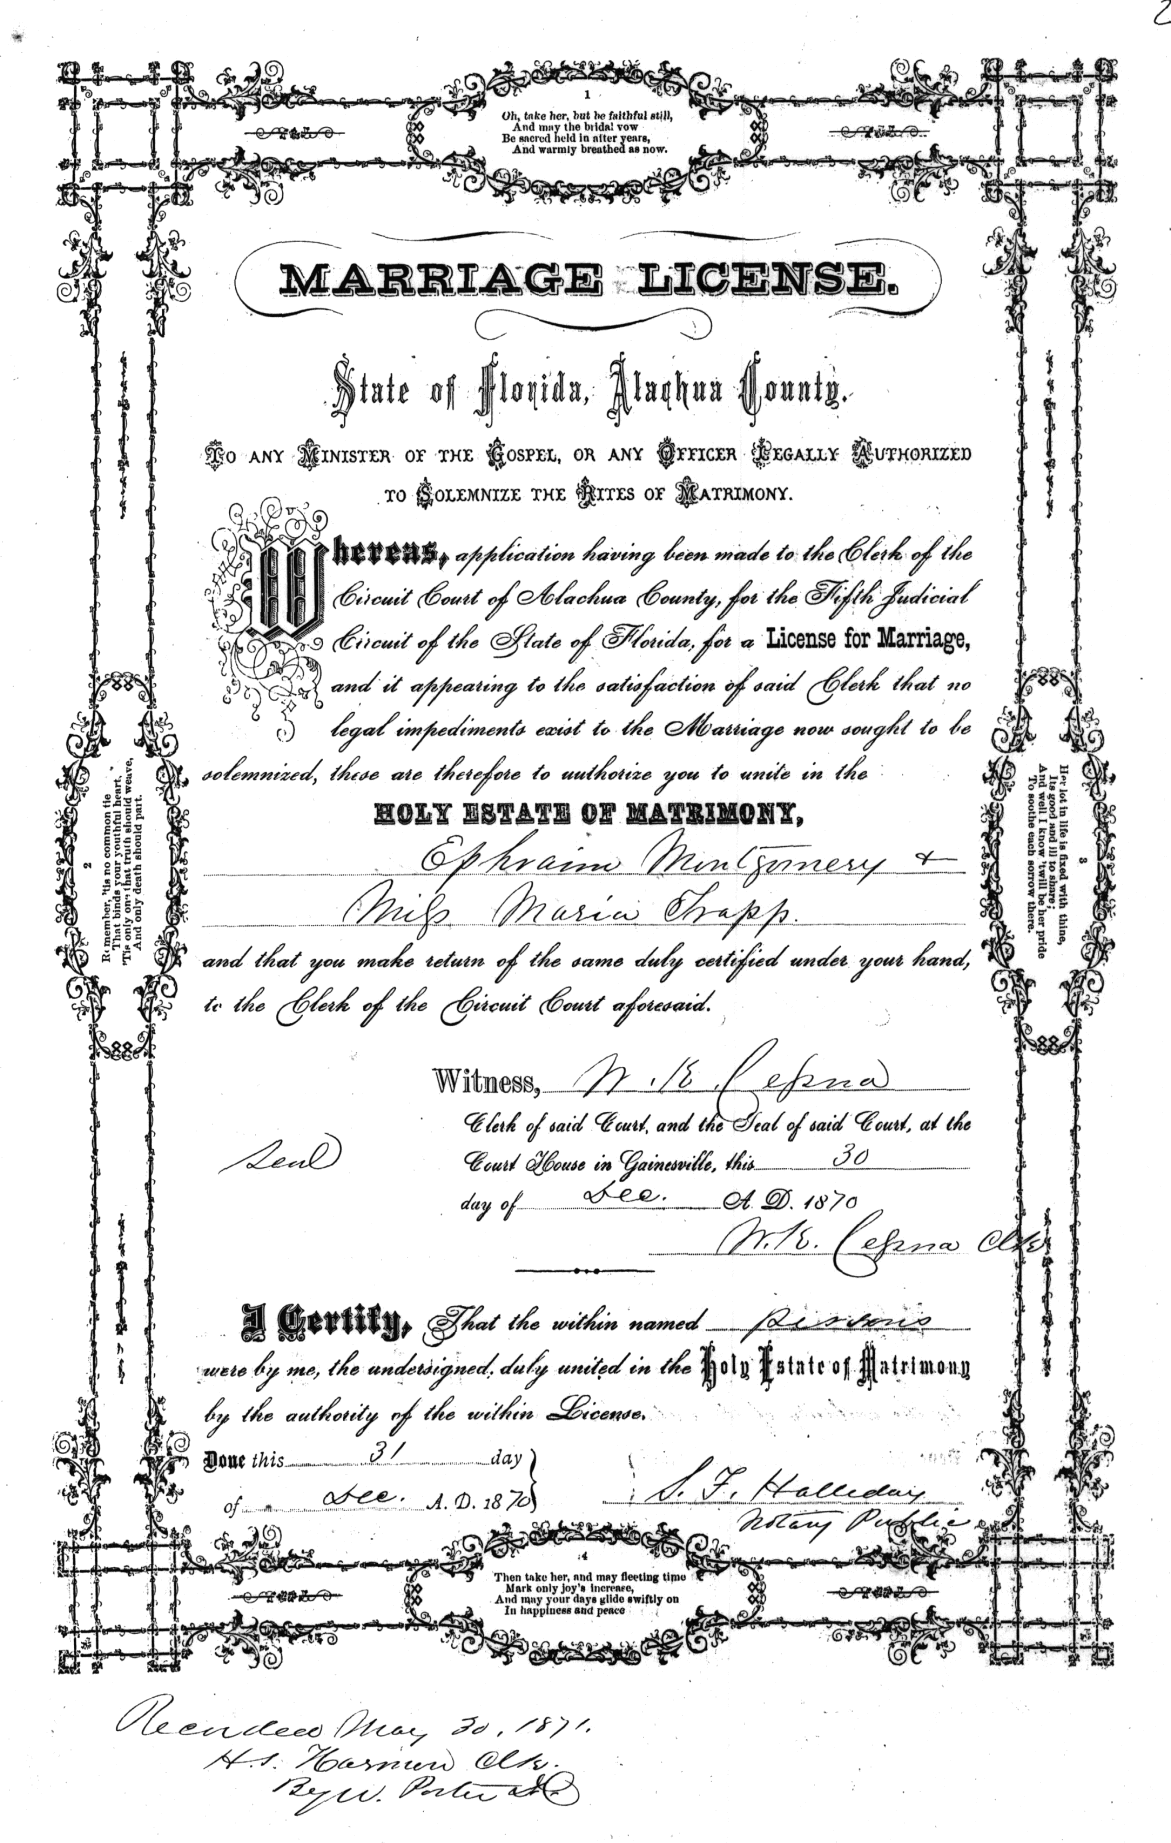 2
1
Oh, take her, but be faithful still,
And may the bridal vow
Be sacred held in after years,
And warmly breathed as now.
MARRIAGE LICENSE.
State of Florida, Alachua County.
TO ANY MINISTER OF THE GOSPEL, OR ANY OFFICER LEGALLY AUTHORIZED
TO SOLEMNIZE THE RITES OF MATRIMONY.
Whereas, application having been made to the Clerk of the
Circuit Court of Alachua County, for the Fifth Judicial
Circuit of the State of Florida, for a License for Marriage,
and it appearing to the satisfaction of said Clerk that no
legal impediments exist to the Marriage now sought to be
solemnized, these are therefore to authorize you to unite in the
HOLY ESTATE OF MATRIMONY,
Ephraim Montgomery &
Miss Maria Trapp.
and that you make return of the same duly certified under your hand,
to the Clerk of the Circuit Court aforesaid.
2
Remember, 'tis no common tie
That binds your youthful heart,
'Tis only one that truth should weave,
And only death should part.
3
Her lot in life is fixed with thine,
Its good and ill to share;
And well I know 'twill be her pride
To soothe each sorrow there.
Witness, W. K. Cessna
Clerk of said Court, and the Seal of said Court, at the
Seal
Court House in Gainesville, this 30
day of Dec. A. D. 1870
W. K. Cessna Clk
I Certify, That the within named persons
were by me, the undersigned, duly united in the Holy Estate of Matrimony
by the authority of the within License.
Done this 31 day
of Dec. A. D. 1870
S. F. Halliday
Notary Public
4
Then take her, and may fleeting time
Mark only joy's increase,
And may your days glide swiftly on
In happiness and peace
Recorded May 30, 1871.
H. S. Harmon Clk.
By W. Porter D.C.